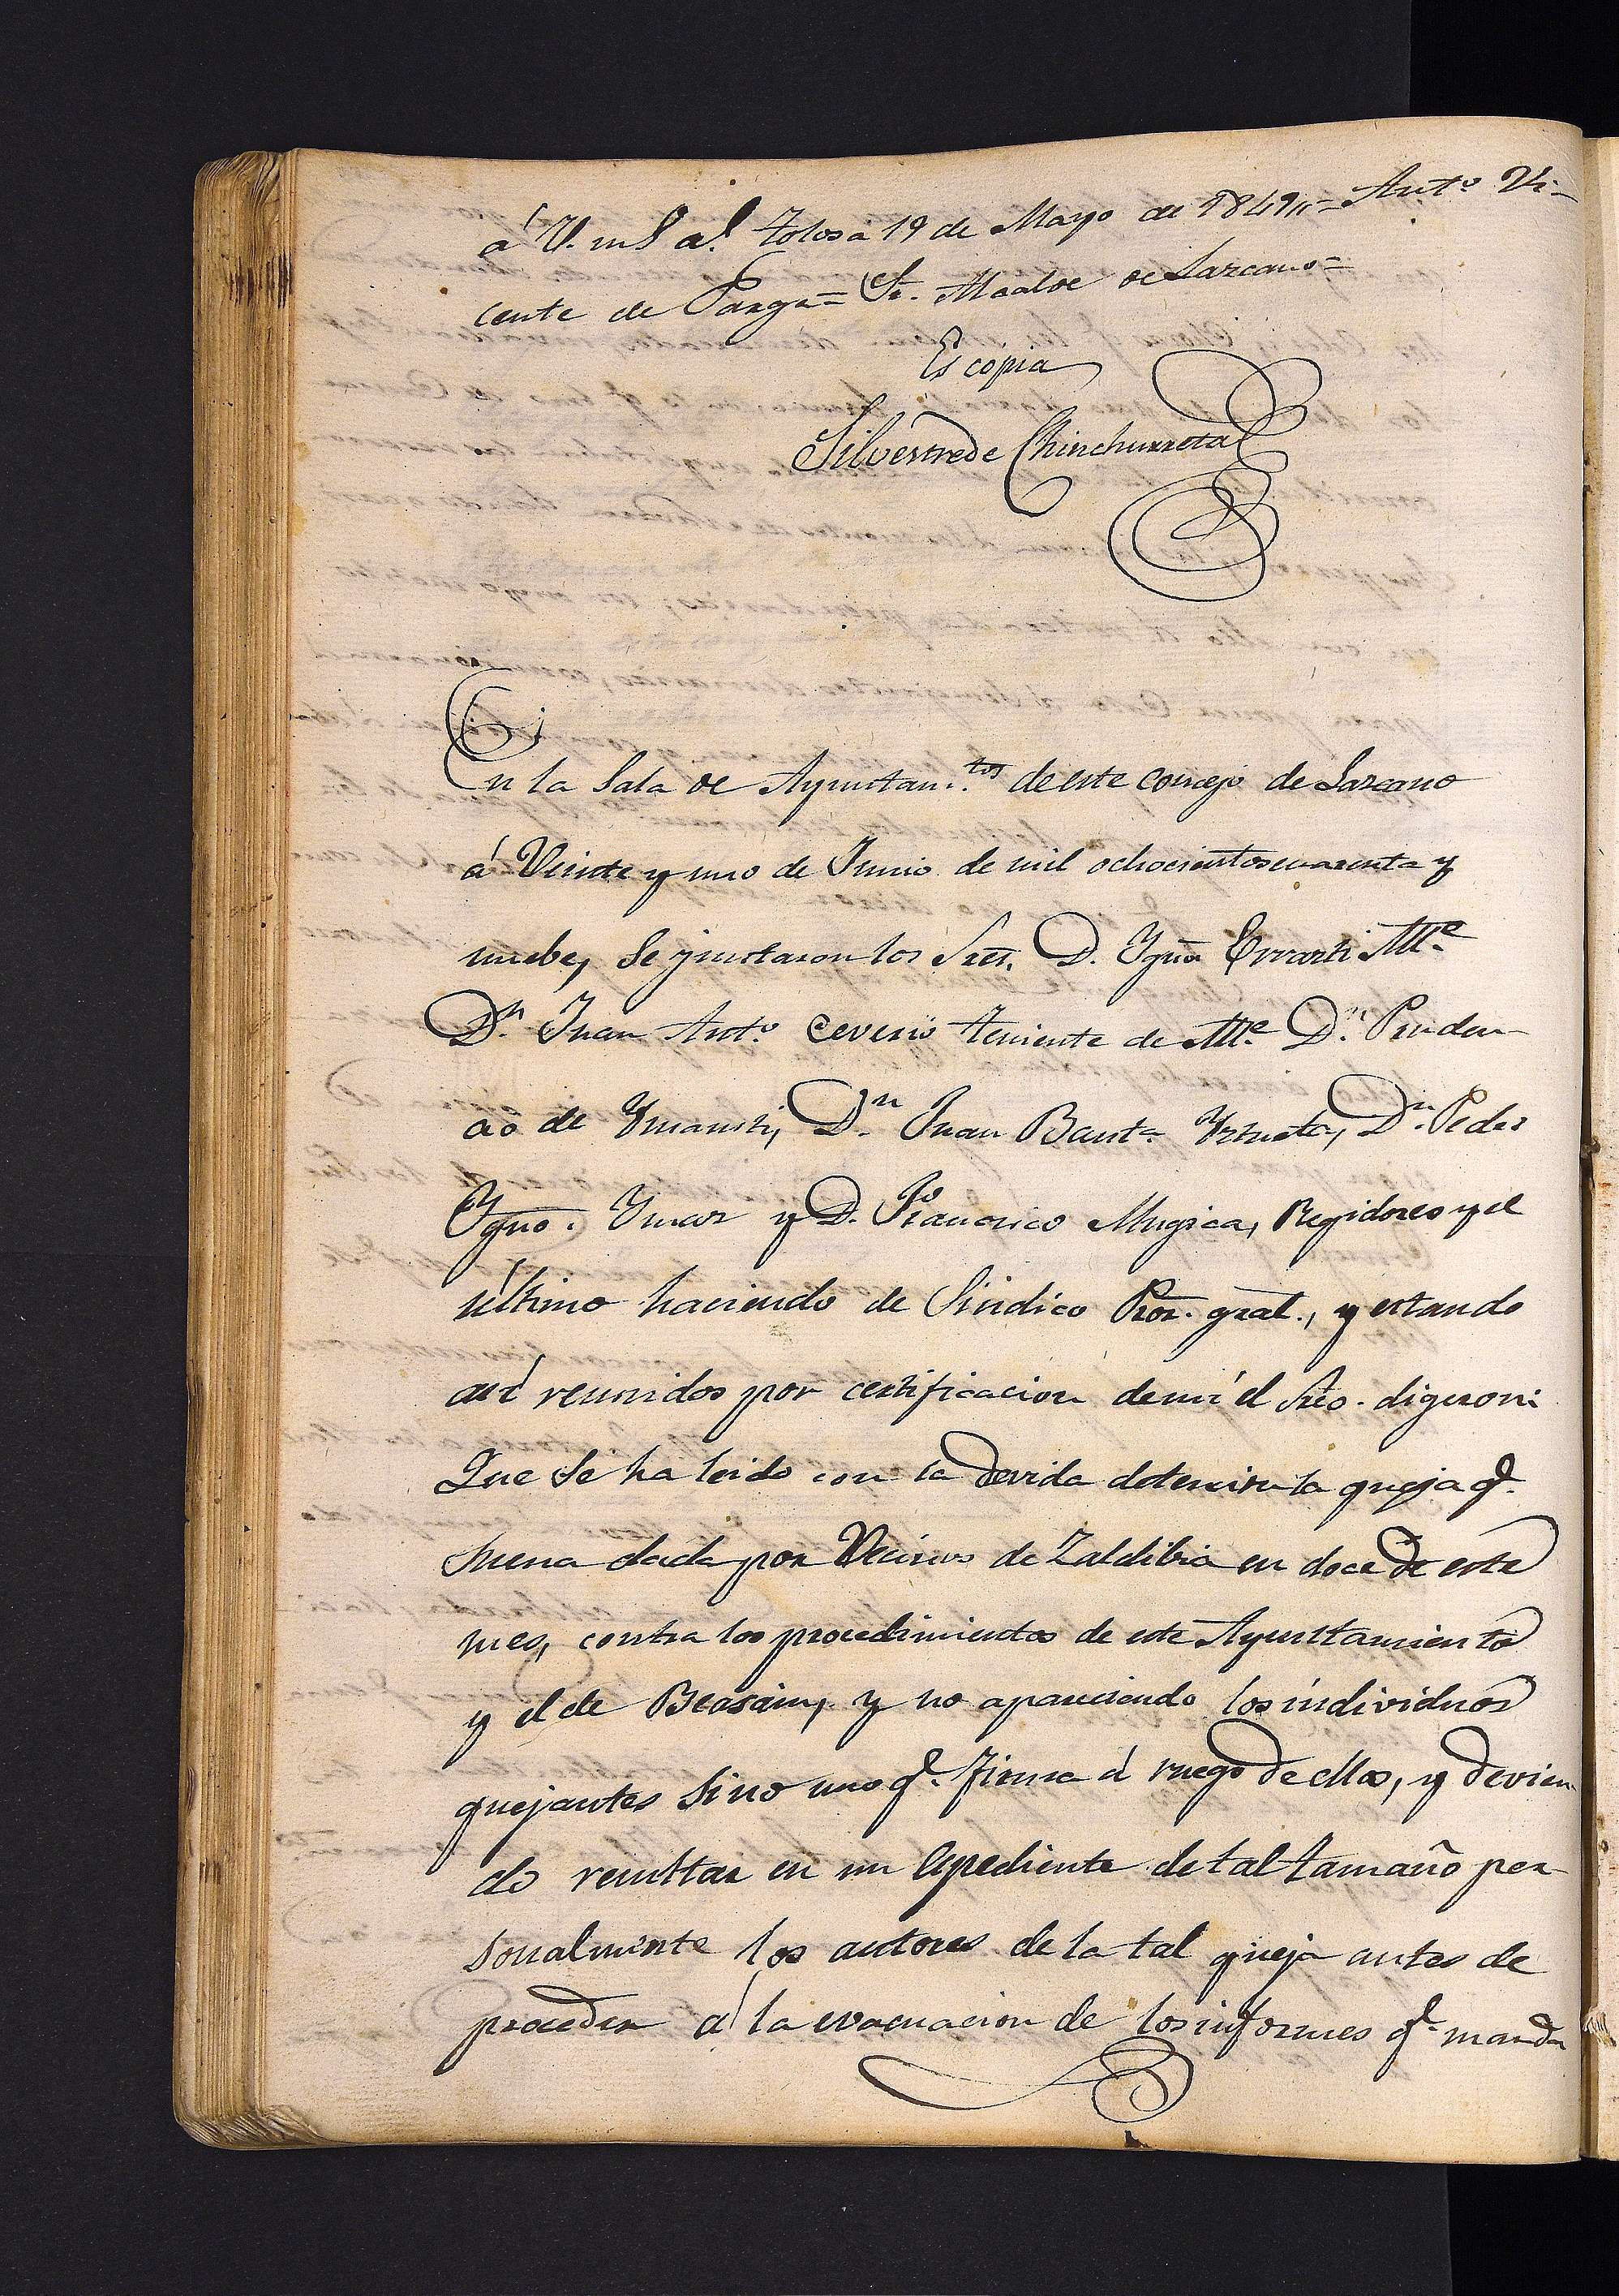 á V. m.s a.s Tolosa 19 de Mayo de 1849 = Ant.o Vi-
cente de Parga = Sr. Alcalde de Lazcano =
Es copia
Silvestre de Chinchurreta
En la Sala de Ayuntam.tos de este concejo de Lazcano
á Veinte y uno de Junio de mil ochocientos cuarenta y
nuebe, se juntaron los Sres. D. Ygno Errarti Alle
Dn Juan Ant.o Ceverio teniente de Alle Dn. Pruden-
cio de Ymausti, Dn. Juan Baut.a Yrzueta, Dn. Pedro
Ygno. Ymaz y D. Francisco Mugica, Regidores y el
último haciendo de Sindico Pror. gral., y estando
así reunidos por certificacion de mi el Srio. digeron:
Que se ha leido con la devida detencion la queja q.e
suena dada por Vecinos de Zaldibia en doce de este
mes, contra los procedimientos de este Ayunttamiento
y el de Beasain, y no apareciendo los individuos
quejantes sino uno q.e firma á ruego de ellos, y devien-
do resultar en un espediente de tal tamaño per-
sonalmente los autores de la tal queja antes de
proceder á la evacuacion de los informes q.e manda